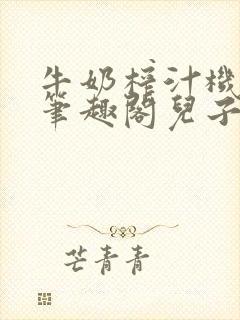 牛奶榨汁機
筆趣閣兒子
芒青青